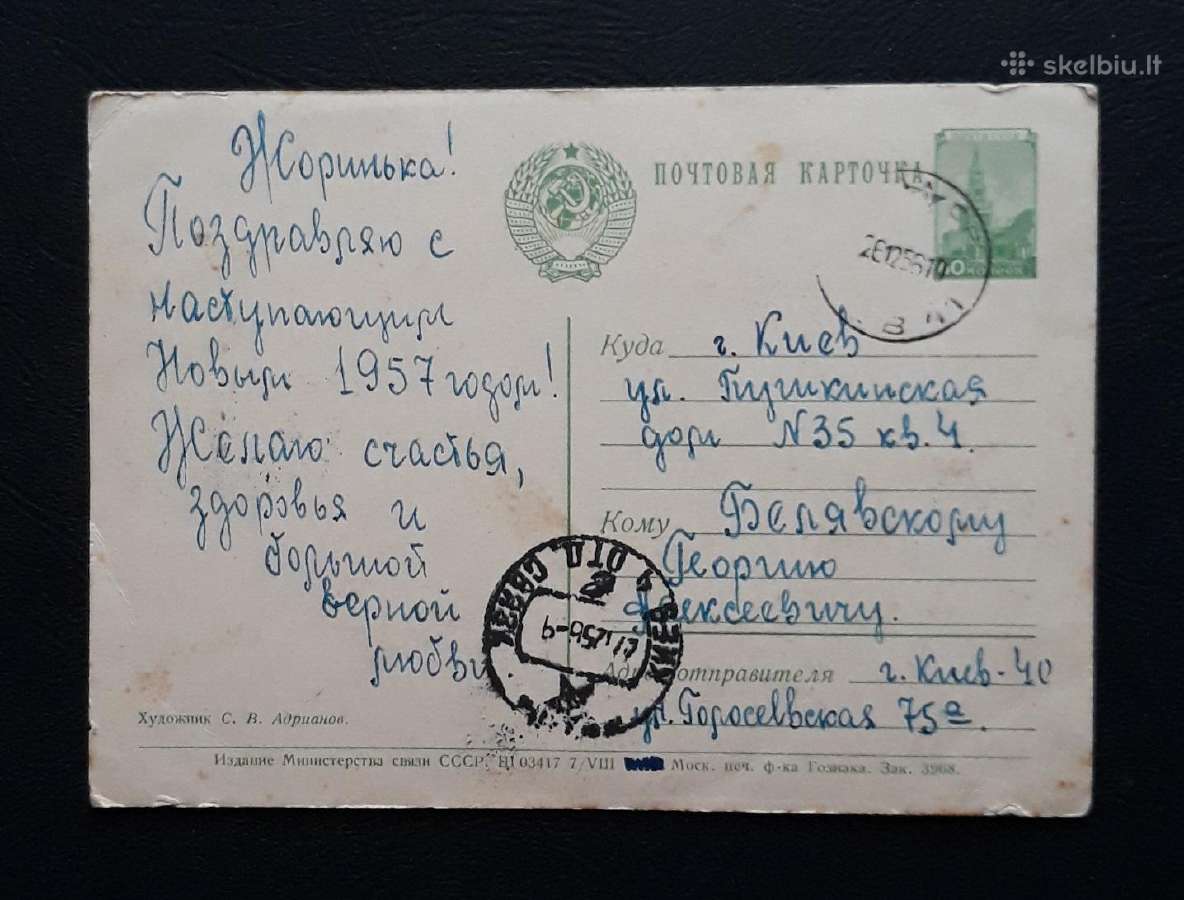 skelbiu.lt
Жоринька!
Поздравляю с
наступающим
Новым 1957 годом!
Желаю счастья,
здоровья и
большой
верной
любви
ПОЧТОВАЯ КАРТОЧКА
26125610
Куда г. Киев
ул. Пушкинская
дом N35 кв. 4
Кому Белявскому
Георгию
Алексеевичу.
Адрес отправителя г. Киев-40
ул. Горосеевская 75а.
КИЕВ 4 ОТД. СВЯЗИ
Художник С. В. Адрианов.
Издание Министерства связи СССР. 03417 7/VIII Моск. печ. ф-ка Гознака. Зак. 3968.